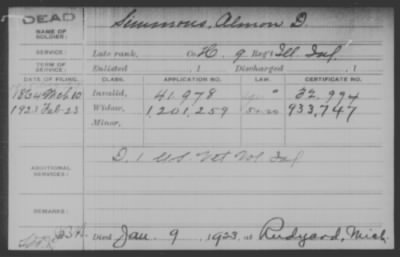 DEAD
NAME OF SOLDIER: Simmons, Almon D.
SERVICE: Late rank, Co. H, 9 Reg't Ill Inf
TERM OF SERVICE: Enlisted , 1 Discharged , 1
DATE OF FILING. CLASS. APPLICATION NO. LAW. CERTIFICATE NO.
1864 Mch 10 Invalid, 41,978 " 32,994
1923 Feb-23 Widow, 1,201,259 933,747
Minor,
ADDITIONAL SERVICES: D. 1 US Vet Vol Inf
REMARKS:
Died Jan. 9, 1923, at Rudyard, Mich.